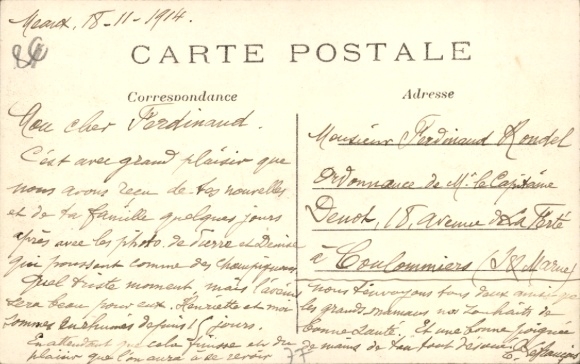 Meaux, 18-11-1914.
CARTE POSTALE
Correspondance
Adresse
Mon cher Ferdinand.
C'est avec grand plaisir que
nous avons reçu de tes nouvelles
et de ta famille quelques jours
après avec les photo. de Pierre et Denise
qui poussent comme des champignons
Quel triste moment, mais l'avenir
sera beau pour eux. Henriette et moi
sommes enrhumés depuis 15 jours.
En attendant que cela finisse et du
plaisir que l'on aura à se revoir
Monsieur Ferdinand Rondel
Ordonnance de Mr le Capitaine
Denot, 18, avenue de La Ferté
à Coulommiers (S & Marne)
nous t'envoyons tous deux ainsi que
les grands mamans nos souhaits de
bonne santé. Et une bonne poignée
de mains de ton tout dévoué